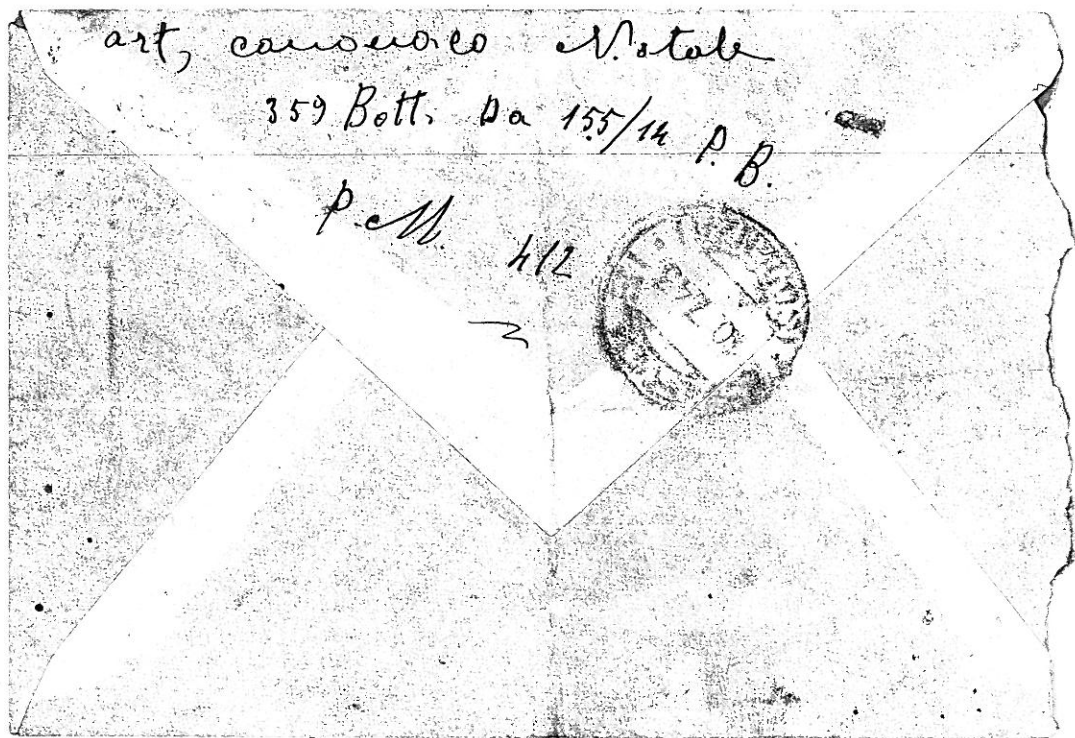 art, canonico Natale
359 Batt. Da 155/14 P. B.
P. M. 412